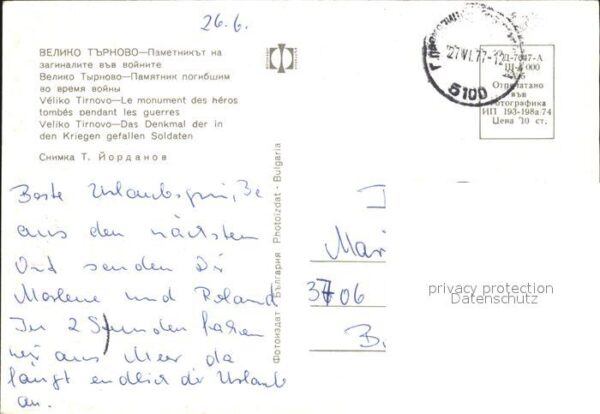 26.6.
ВЕЛИКО ТЪРНОВО—Паметникът на
загиналите във войните
Велико Тырново—Памятник погибшим
во время войны
Véliko Tirnovo—Le monument des héros
tombés pendant les guerres
Veliko Tirnovo—Das Denkmal der in
den Kriegen gefallen Soldaten
Снимка Т. Йорданов
Фотоиздат - България Photoizdat - Bulgaria
27.VI.77-12
5100
Д-7047-А
Отпечатано
във
Фотографика
ИП 193-198а/74
Цена 10 ст.
Beste Urlaubsgrüße
aus dem nächsten
Ort senden Dir
Marlene und Roland
In 2 Stunden fahren
wir ans Meer da
fängt endlich der Urlaub
an.
Mar
3706
B.
privacy protection
Datenschutz